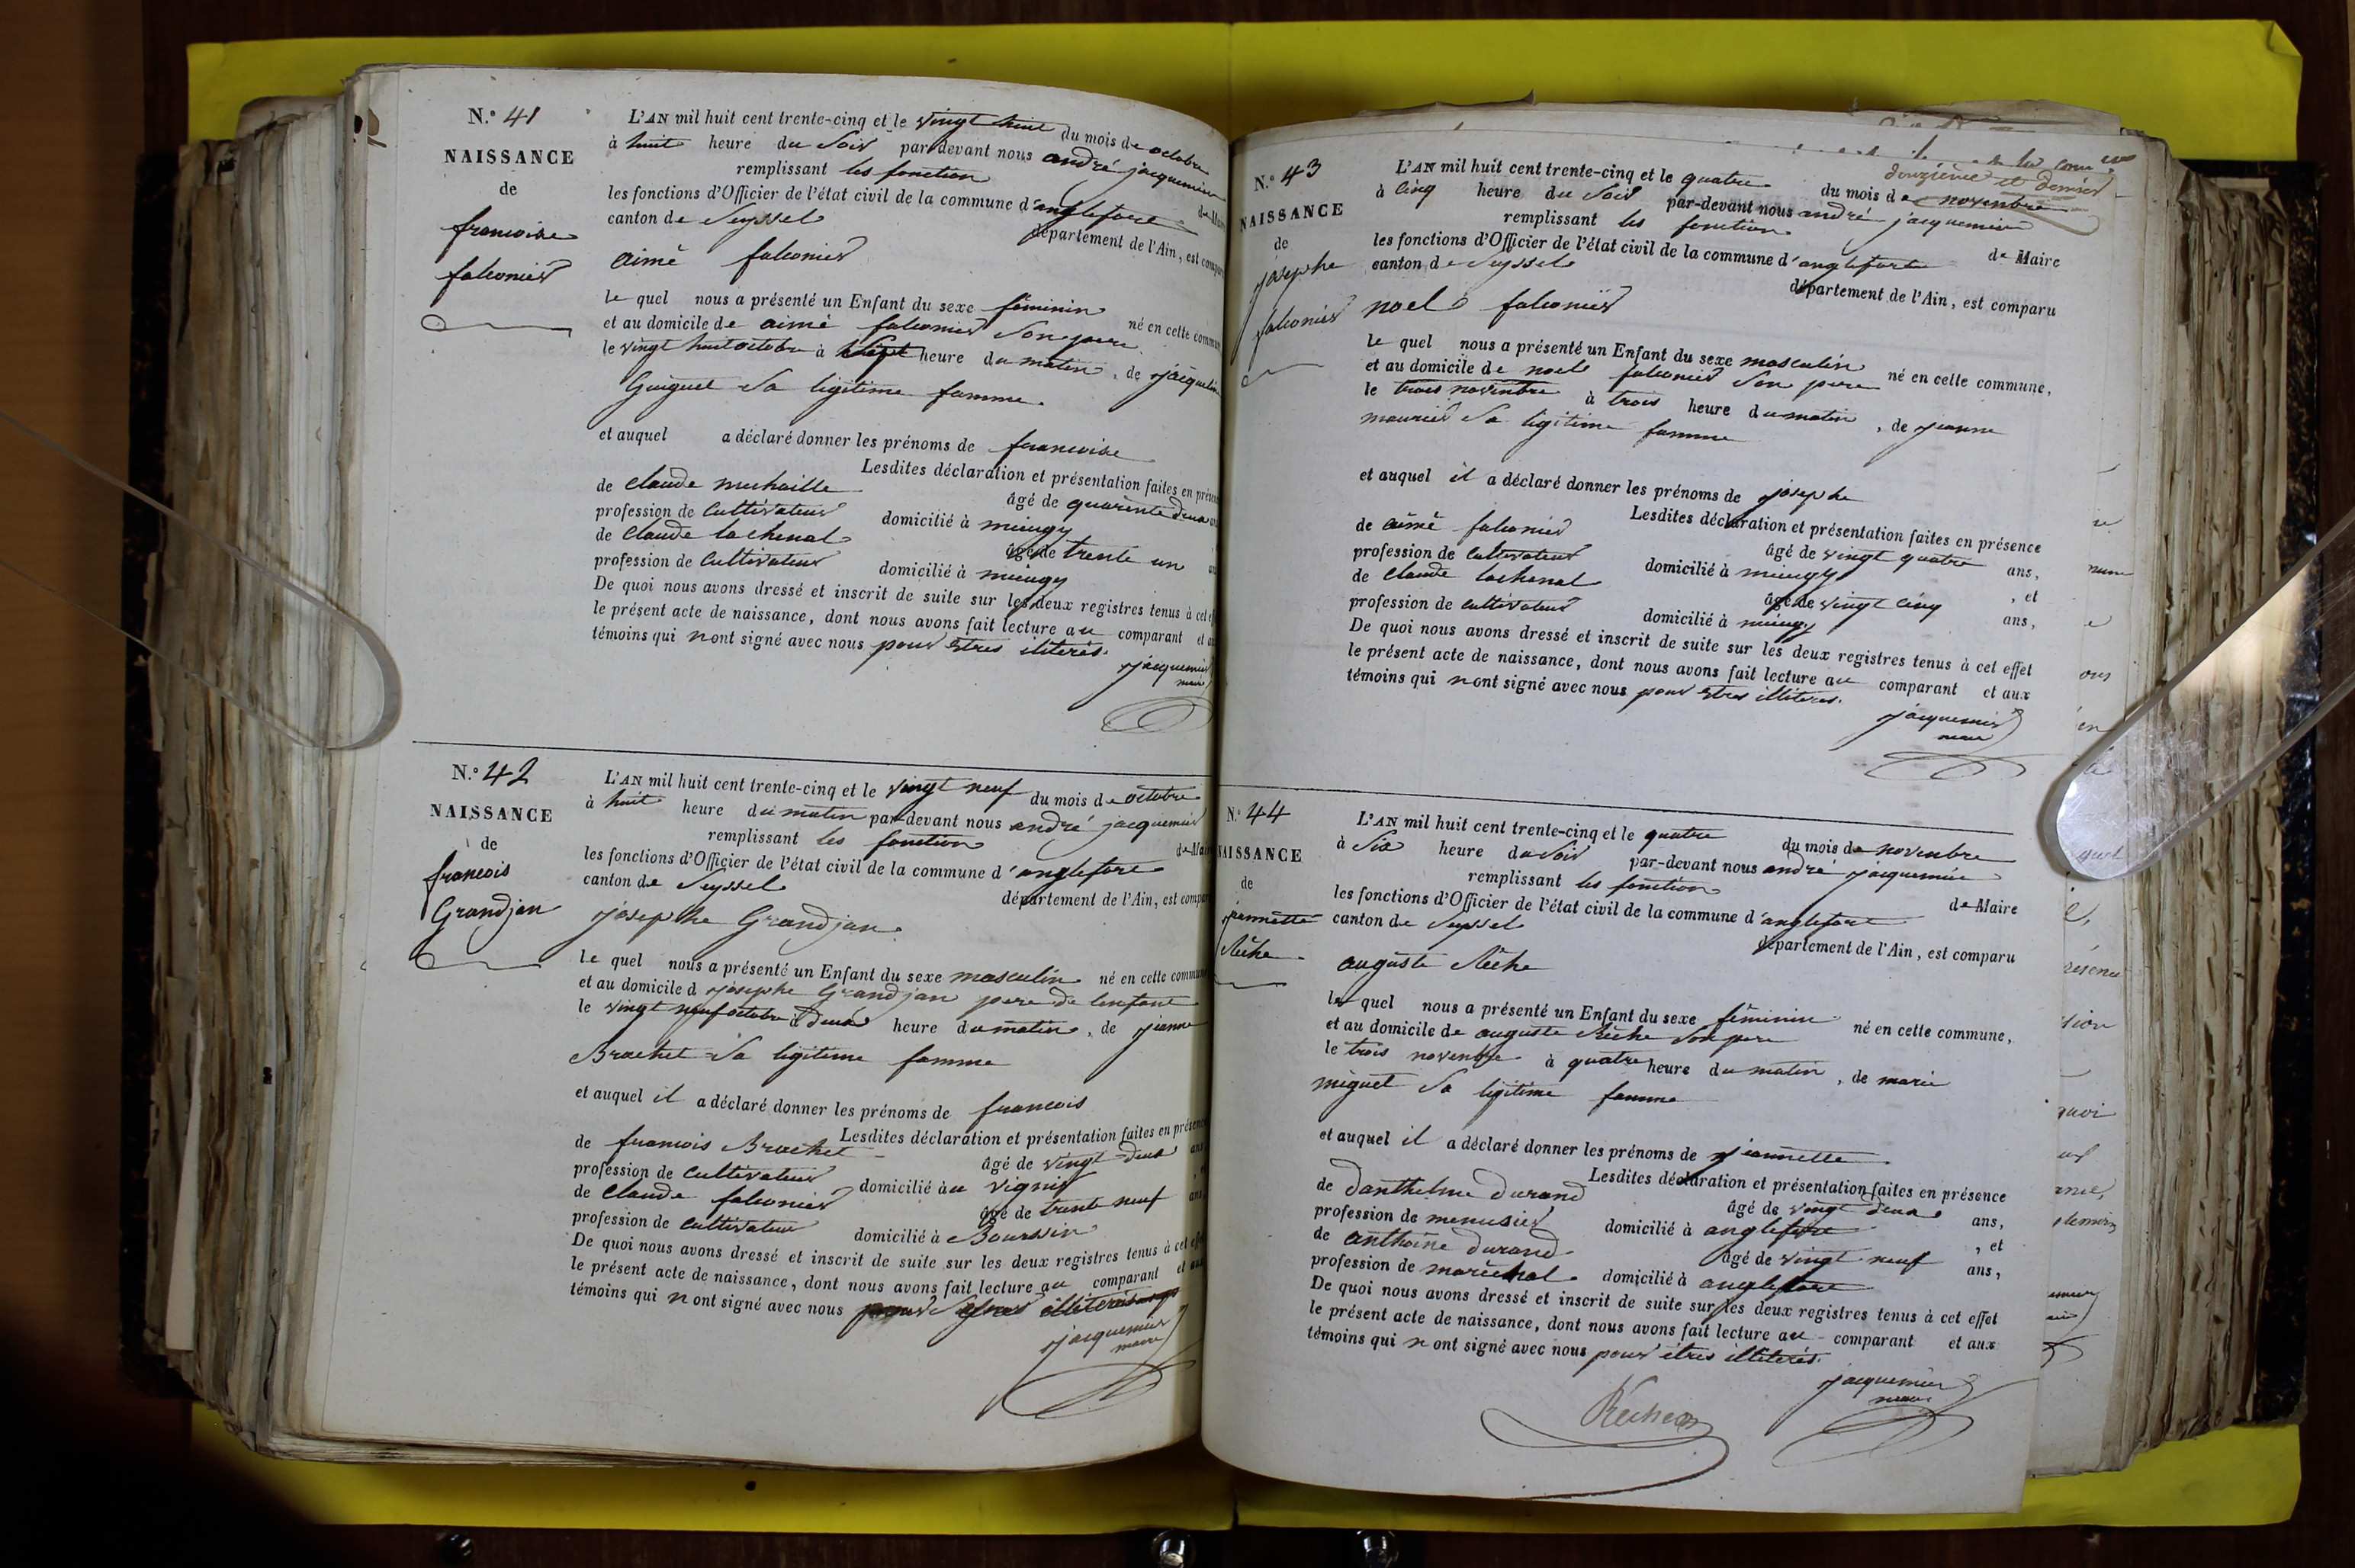 N.° 41
NAISSANCE
de
francoise
falconier
L'AN mil huit cent trente-cinq et le vingt huit du mois de octobre
à huit heure du soir par-devant nous andré jacquemier
remplissant les fonction de Mai
les fonctions d'Officier de l'état civil de la commune d'anglefort
canton de Seyssel département de l'Ain, est compa
aimé falconier
le quel nous a présenté un Enfant du sexe féminin né en cette commun
et au domicile de aimé falconier son pere
le vingt huit octobre à heure du matin, de jacqueline
Guiguet sa ligitime famme.
et auquel a déclaré donner les prénoms de francoise
Lesdites déclaration et présentation faites en présen
de claude michaille âgé de quarente deux
profession de cultivateur domicilié à mieugy
de claude lachenal âgé de trente un
profession de cultivateur domicilié à mieugy
De quoi nous avons dressé et inscrit de suite sur les deux registres tenus à cet ef
le présent acte de naissance, dont nous avons fait lecture au comparant et au
témoins qui n ont signé avec nous pour êtres iliterés.
jacquemier
maire
N.° 42
NAISSANCE
de
francois
Grandjan
L'AN mil huit cent trente-cinq et le vingt neuf du mois de octobre
à huit heure du matin par-devant nous andré jacquemier
remplissant les fonction de Mair
les fonctions d'Officier de l'état civil de la commune d'anglefort
canton de Seyssel département de l'Ain, est compar
josephe Grandjan
le quel nous a présenté un Enfant du sexe masculin né en cette commune
et au domicile d josephe Grandjan pere de lenfant
le vingt neuf octobre à deux heure du matin, de jeanne
Brachet sa ligitime famme
et auquel il a déclaré donner les prénoms de francois
Lesdites déclaration et présentation faites en présence
de francois Brachet âgé de vingt deux ans,
profession de cultivateur domicilié au vignier
de claude falconier âgé de trente neuf ans,
profession de cultivateur domicilié à Boursin
De quoi nous avons dressé et inscrit de suite sur les deux registres tenus à cet effet
le présent acte de naissance, dont nous avons fait lecture au comparant et aux
témoins qui n ont signé avec nous pour
jacquemier
maire
douzième et dernier
N.° 43
NAISSANCE
de
josephe
falconier
L'AN mil huit cent trente-cinq et le quatre du mois de novembre
à cinq heure du soir par-devant nous andré jacquemier
remplissant les fonction de Maire
les fonctions d'Officier de l'état civil de la commune d'anglefort
canton de Seyssel département de l'Ain, est comparu
noel falconier
le quel nous a présenté un Enfant du sexe masculin né en cette commune,
et au domicile de noel falconier son pere
le trois novembre à trois heure du matin, de jeanne
maurier sa ligitime famme
et auquel il a déclaré donner les prénoms de josephe
Lesdites déclaration et présentation faites en présence
de aimé falconier âgé de vingt quatre ans,
profession de cultivateur domicilié à mieugy, et
de claude lachenal âgé de vingt cinq ans,
profession de cultivateur domicilié à mieugy
De quoi nous avons dressé et inscrit de suite sur les deux registres tenus à cet effet
le présent acte de naissance, dont nous avons fait lecture au comparant et aux
témoins qui n ont signé avec nous pour êtres illiteres.
jacquemier
maire
N.° 44
NAISSANCE
de
jeannette
Rêche
L'AN mil huit cent trente-cinq et le quatre du mois de novembre
à six heure du soir par-devant nous andré jacquemier
remplissant les fonction de Maire
les fonctions d'Officier de l'état civil de la commune d'anglefort
canton de Seyssel département de l'Ain, est comparu
auguste Rêche
le quel nous a présenté un Enfant du sexe féminin né en cette commune,
et au domicile de auguste Rêche son pere
le trois novembre à quatre heure du matin, de marie
miguet sa ligitime famme
et auquel il a déclaré donner les prénoms de jeannette
Lesdites déclaration et présentation faites en présence
de danthelme durand âgé de vingt deux ans,
profession de menusier domicilié à anglefort, et
de anthoine durand âgé de vingt neuf ans,
profession de maréchal domicilié à anglefort
De quoi nous avons dressé et inscrit de suite sur les deux registres tenus à cet effet
le présent acte de naissance, dont nous avons fait lecture au comparant et aux
témoins qui n ont signé avec nous pour êtres illiterés.
jacquemier
maire